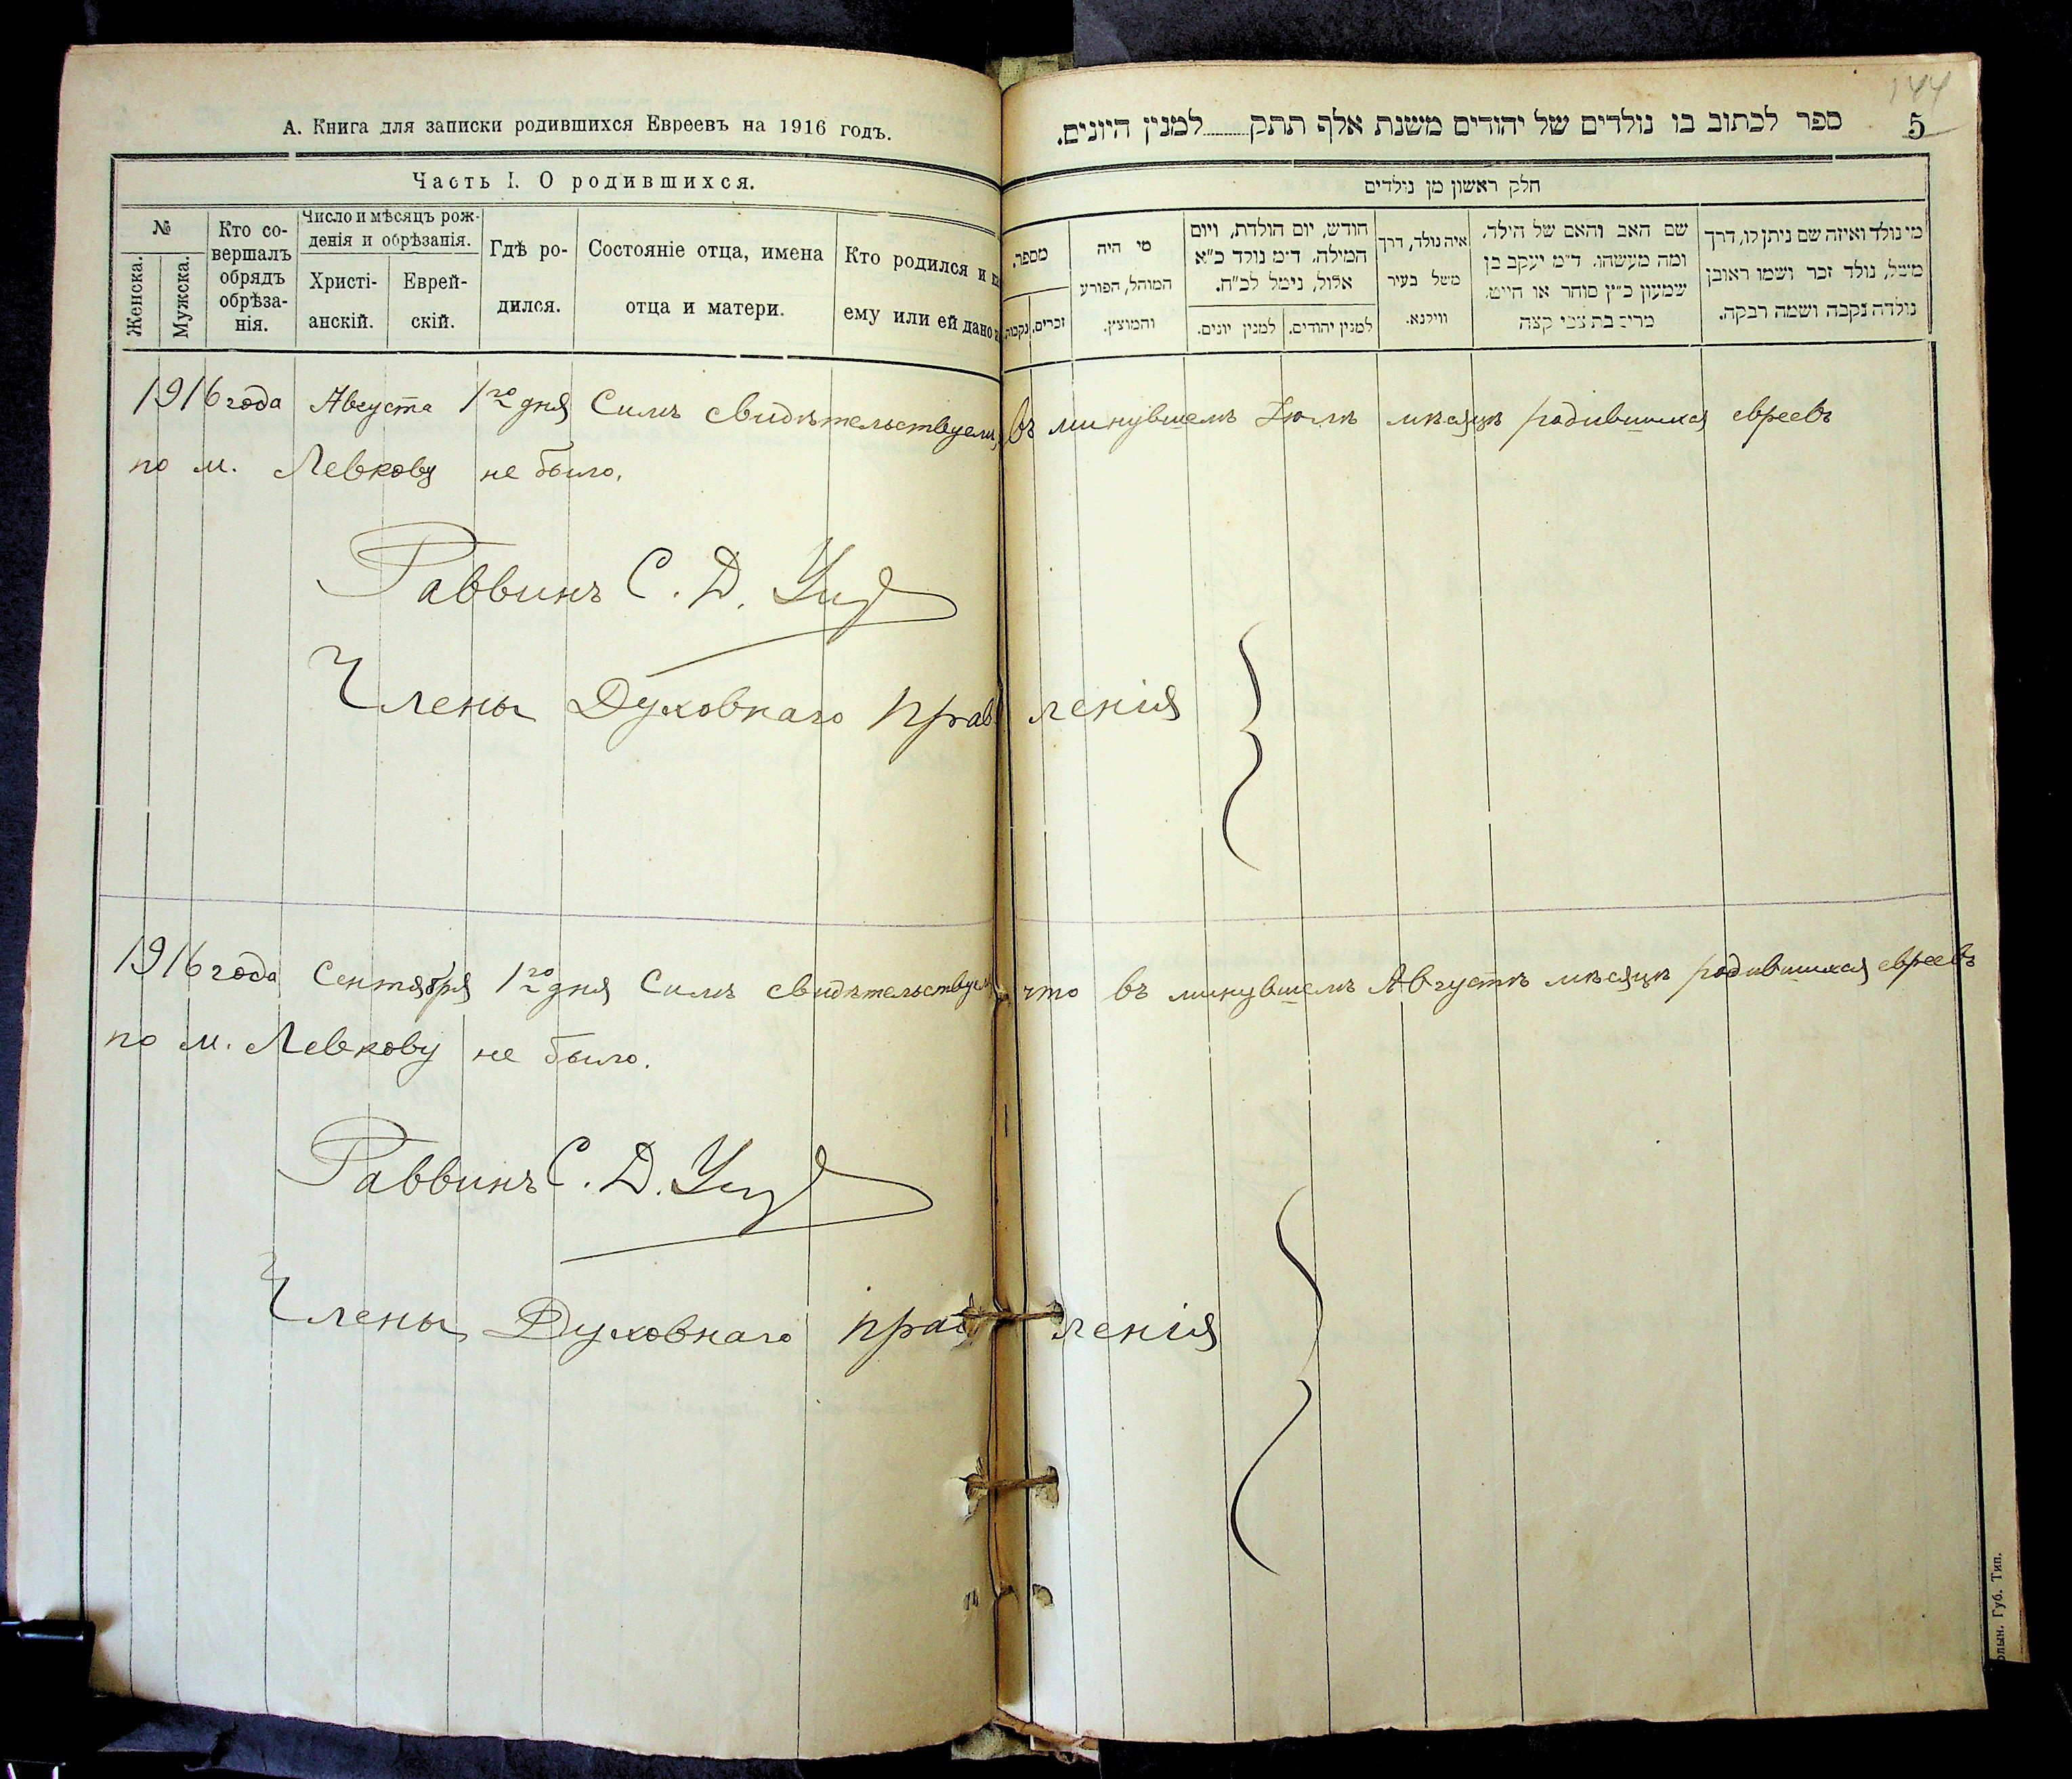 А. Книга для записки родившихся Евреевъ на 1916 годъ.
Часть I. О родившихся.
№
Женска.
Мужска.
Кто со-
вершалъ
обрядъ
обрѣза-
нія.
Число и мѣсяцъ рож-
денія и обрѣзанія.
Христі-
анскій.
Еврей-
скій.
Гдѣ ро-
дился.
Состояніе отца, имена
отца и матери.
Кто родился и
ему или ей дано
144
5
ספר לכתוב בו נולדים של יהודים משנת אלף תתק למנין היונים.
חלק ראשון מן נולדים
מי נולד ואיזה שם ניתן לו, דרך
משל, נולד זכר ושמו ראובן
נולדה נקבה ושמה רבקה.
שם האב והאם של הילד.
ומה מעשהו. ד״מ יעקב בן
שמעון כ״ץ סוחר או חייט.
איה נולד, דרך
משל בעיר
ווילנא.
חודש, יום הולדת, ויום
המילה. ד״מ נולד כ״א
אלול, נימל לכ״ח.
למנין יהודים.
למנין יונים.
מי היה
המוהל, הפורע
והמוצץ.
מספר.
זכרים.
נקבות.
1916 года Августа 1го дня Симъ свидѣтельствуемъ, въ минувшемъ Іюлѣ мѣсяцѣ родившихся евреевъ
по м. Левкову не было.
Раввинъ С. Д.
Члены Духовнаго правленія
1916 года Сентября 1го дня Симъ свидѣтельствуемъ, что въ минувшемъ Августѣ мѣсяцѣ родившихся евреевъ
по м. Левкову не было.
Раввинъ С. Д.
Члены Духовнаго правленія
Губ. Тип.